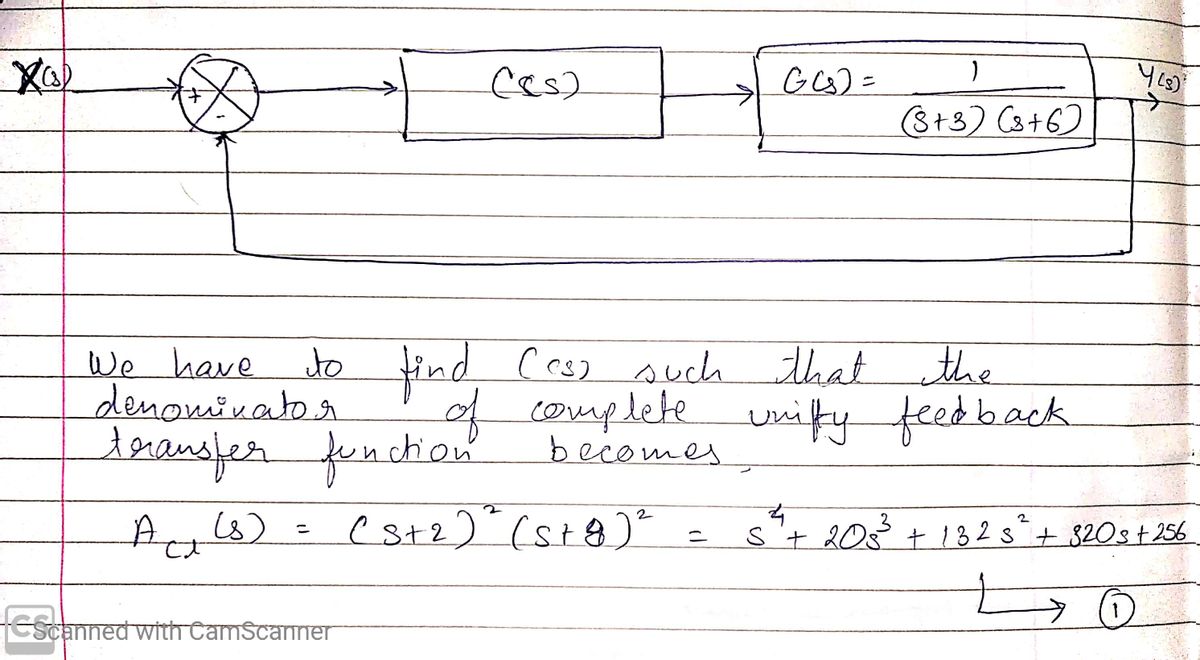 X(s)
+
-
C(s)
G(s) = 1
(s+3) (s+6)
Y(s)
We have to find C(s) such that the
denominator of complete unifty feedback
transfer function becomes,
A_cl (s) = (s+2)² (s+8)² = s⁴ + 20s³ + 132s² + 320s + 256
1
CS Scanned with CamScanner